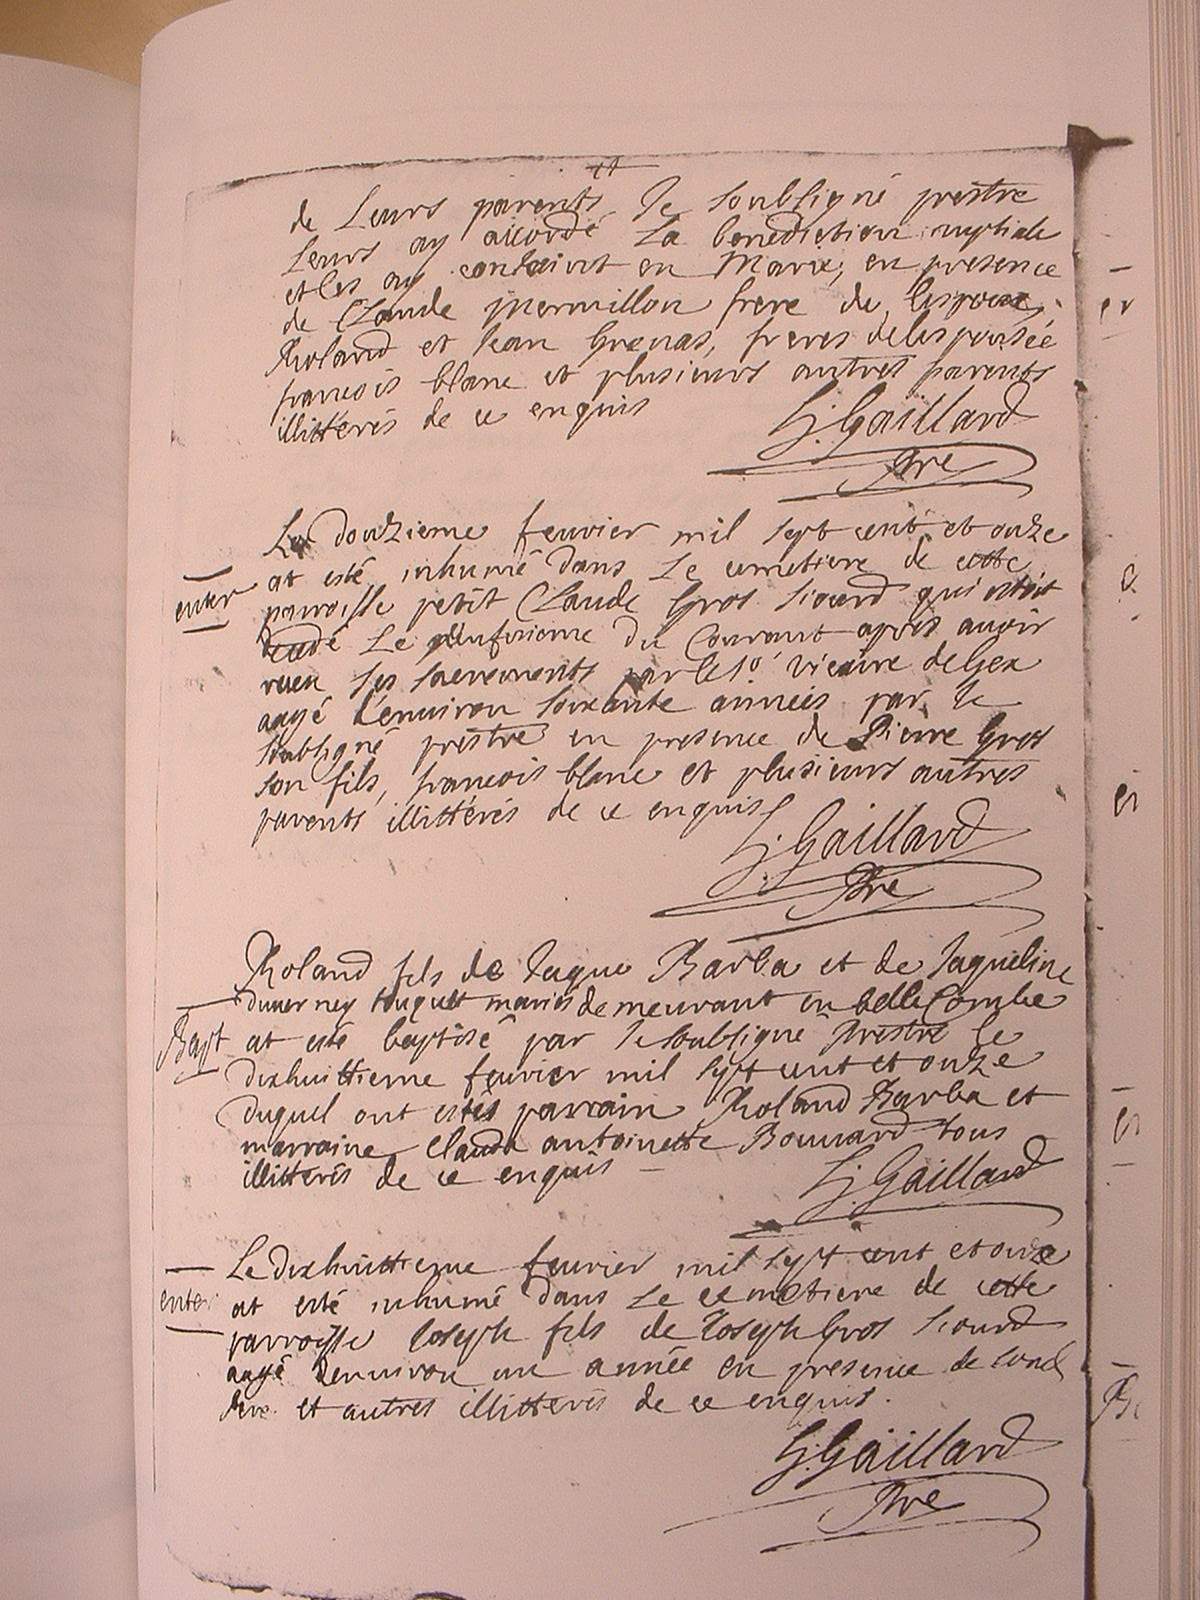 de Leurs parents Je soubsigné prestre
Leurs ay accordé La benediction nuptiale
et les ay conjoint en Marie, en presence
de Claude Mermillon frere de lespoux,
Roland et Jean Grenas, freres de lespousée
francois blanc et plusieurs autres parents
illitterés de ce enquis
G. Gaillard
Pre
Le Douzieme feuvrier mil sept cent et onze
enter
at esté inhumé dans Le cemetiere de cette
parroisse petit Claude Gros Sicard qui estoit
decedé Le du Courant apres avoir
receu ses sacrements par le Sr vicaire de Gex
aagé denviron soixante années par Je
soubsigné prestre en presence de Pierre Gros
son fils, francois blanc et plusieurs autres
parents illitterés de ce enquis
G. Gaillard
Pre
Roland fils de Jaque Barba et de Jaqueline
duverney mariés demeurant en belle Combe
Bapt
at esté baptisé par Je soubsigné Prestre Le
dixhuittieme feuvrier mil sept cent et onze
duquel ont estés parrain Roland Barba et
marraine Clauda antoinette tous
illitterés de ce enquis
G. Gaillard
Le dixhuittieme feuvrier mil sept cent et onze
enter
at esté inhumé dans Le cemetiere de cette
parroisse Joseph fils de Joseph Gros
aagé denviron un année en presence de
pere et autres illitterés de ce enquis.
G. Gaillard
Pre